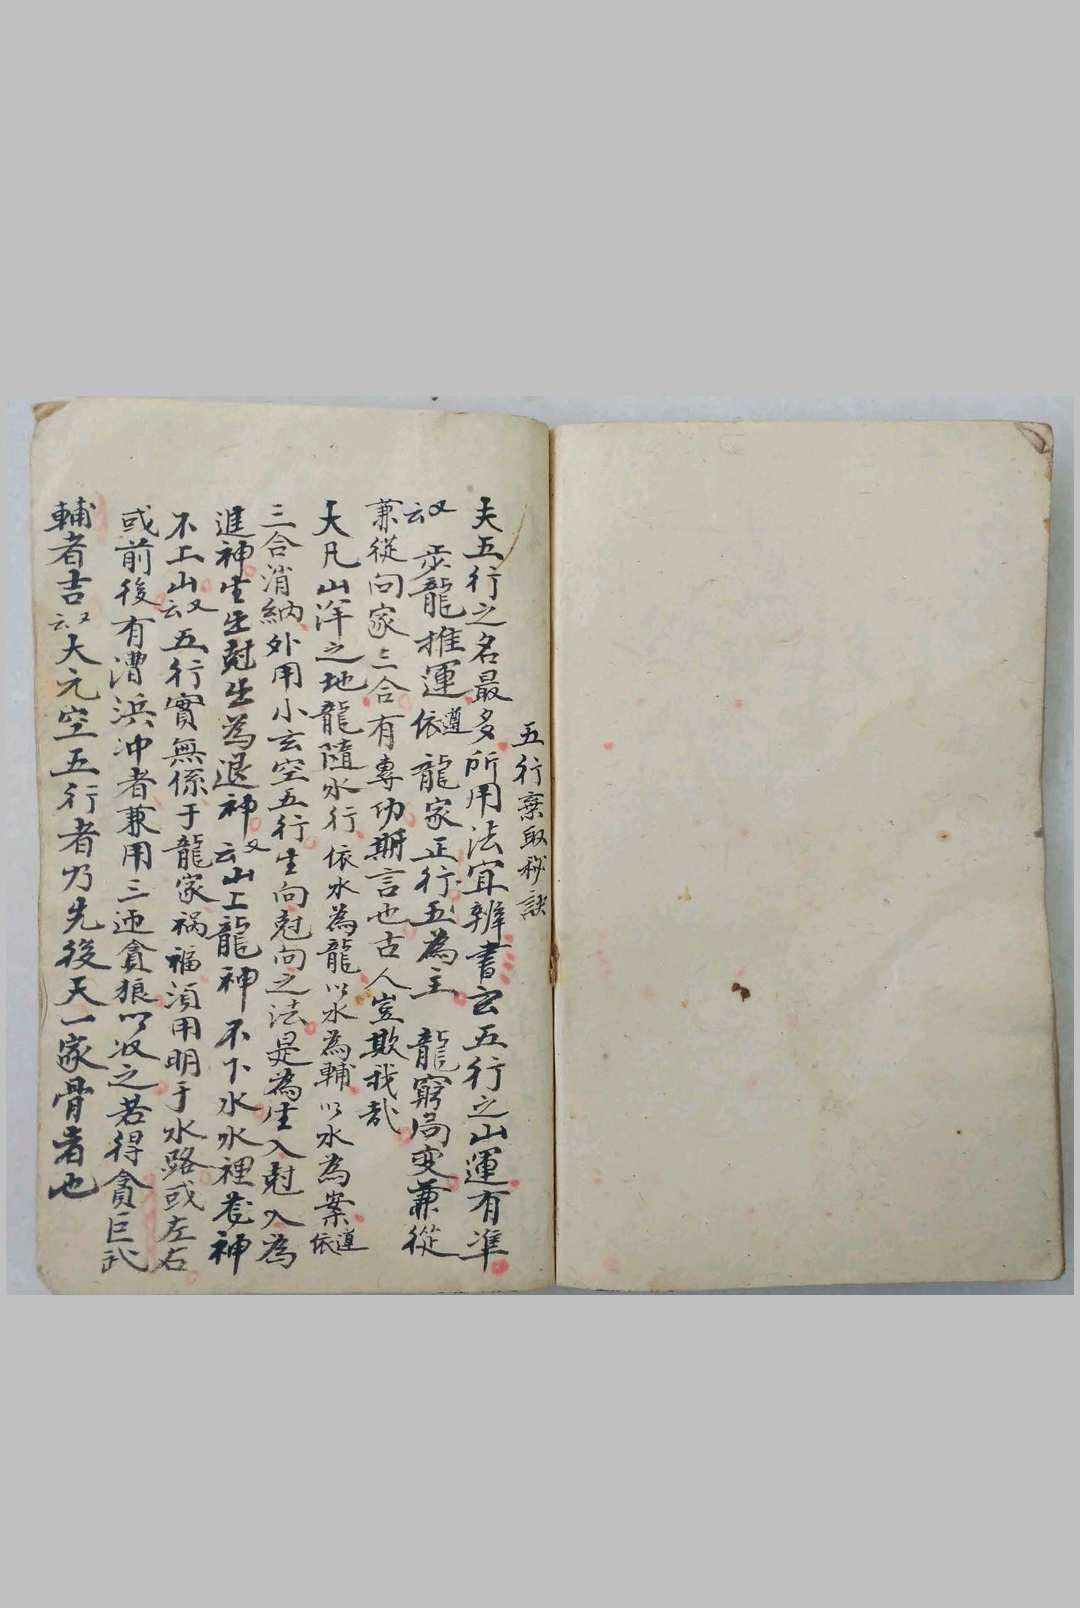 五行棄取秘訣
夫五行之名最多所用法宜辨書云五行之山運有準
又云步龍推運遵依龍家正行五為主龍窮局变兼從
兼從向家三合有專功斯言也古人豈欺我哉
大凡山洋之地龍隨水行依水為龍以水為輔以水為案遵依
三合消納外用小玄空五行生向尅向之法是為生入尅入為
進神生生尅生為退神又云山上龍神不下水水裡龍神
不上山又云五行實無係于龍家禍福須用明于水路或左右
或前後有漕浜冲者兼用三迊貪狼以收之若得貪巨武
輔者吉又云大元空五行者乃先後天一家骨者也